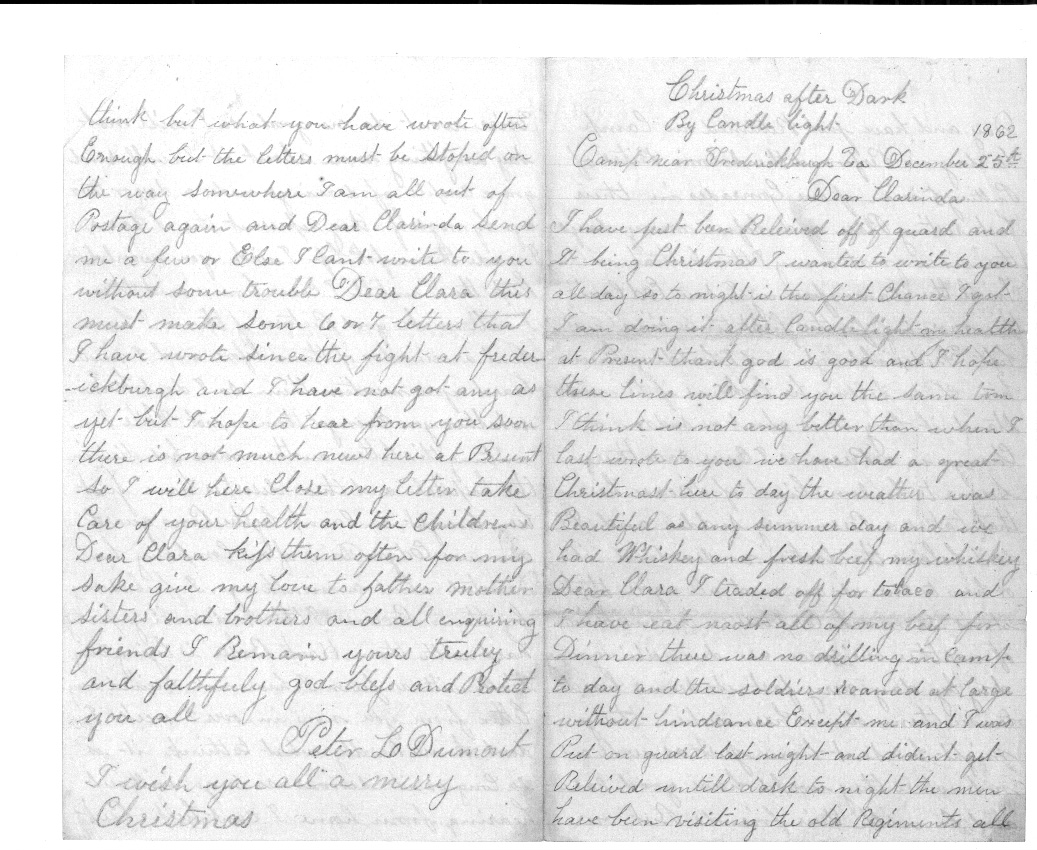 Christmas after Dark
By Candle light
1862
Camp near Frederickburgh Va December 25th
Dear Clarinda
I have just been Relieved off of guard and
It being Christmas I wanted to write to you
all day so to night is the first Chance I got
I am doing it after Candlelight my health
at Present thank god is good and I hope
these lines will find you the same tom
I think is not any better than when I
last wrote to you we have had a great
Christmast here to day the weather was
Beautiful as any summer day and we
had Whiskey and fresh beef my whiskey
Dear Clara I traded off for tobaco and
I have eat most all of my beef for
Dinner there was no drilling in Camp
to day and the soldiers roamed at large
without hindrance Except me and I was
Put on guard last night and dident get
Relieved untill dark to night the men
have been visiting the old Regiments all
think but what you have wrote often
Enough but the letters must be stoped on
the way somewhere I am all out of
Postage again and Dear Clarinda send
me a few or Else I Cant write to you
without some trouble Dear Clara this
must make some 6 or 7 letters that
I have wrote since the fight at freder
-ickburgh and I have not got any as
yet but I hope to hear from you soon
there is not much news here at Present
so I will here Close my letter take
Care of your health and the Childrens
Dear Clara kiss them often for my
sake give my love to father mother
sisters and brothers and all enquiring
friends I Remain yours truley
and faithfuly god bless and Protect
you all
Peter L Dumont
I wish you all a merry
Christmas